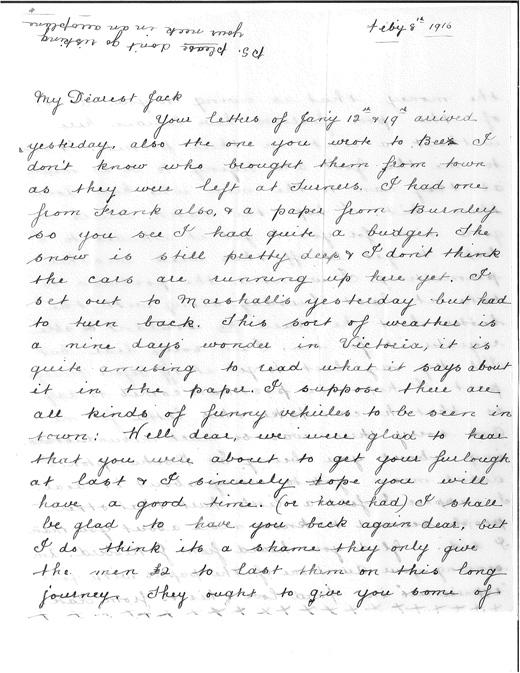 Feby 8th 1916
P.S. please don't go risking
your neck in an aeroplane
My Dearest Jack
Your letters of Jan'y 12th & 19th arrived
yesterday, also the one you wrote to Bee. I
don't know who brought them from town
as they were left at Turners. I had one
from Frank also, & a paper from Burnley
so you see I had quite a budget. The
snow is still pretty deep & I don't think
the cars are running up here yet. I
set out to Marshall's yesterday but had
to turn back. This sort of weather is
a nine days wonder in Victoria, it is
quite amusing to read what it says about
it in the paper. I suppose there are
all kinds of funny vehicles to be seen in
town: Well dear, we were glad to hear
that you were about to get your furlough
at last & I sincerely hope you will
have a good time. (or have had) I shall
be glad to have you back again dear, but
I do think its a shame they only give
the men £2 to last them on this long
journey. They ought to give you some of